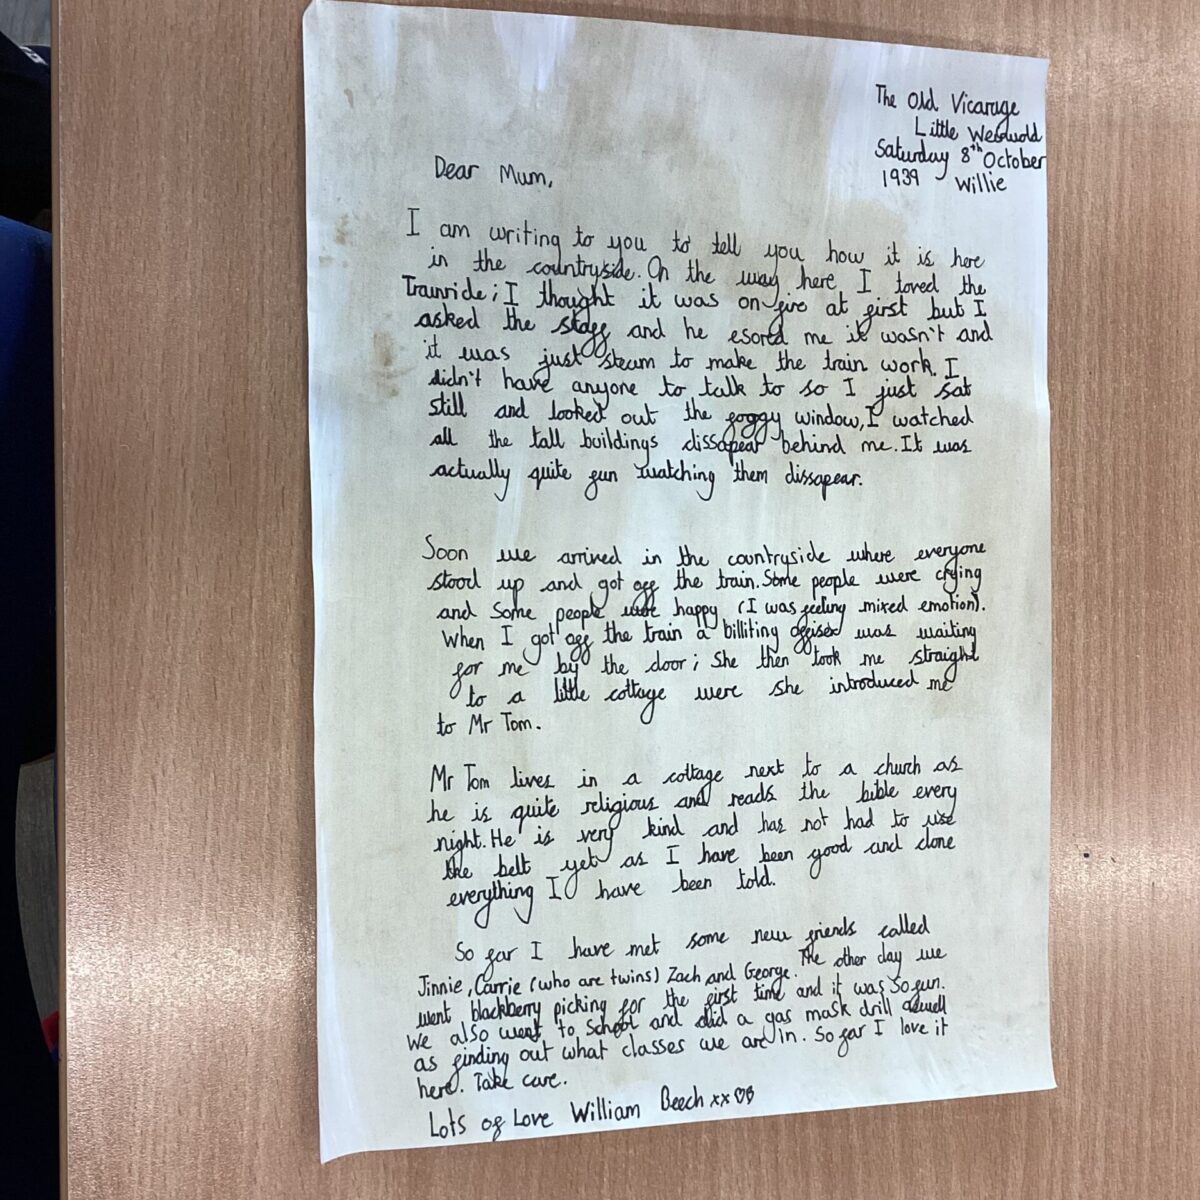 The Old Vicarage
Little Weswold
Saturday 8th October
1939 Willie
Dear Mum,
I am writing to you to tell you how it is here
in the countryside. On the way here I loved the
Trainride; I thought it was on fire at first but I
asked the staff and he esored me it wasn't and
it was just steam to make the train work. I
didn't have anyone to talk to so I just sat
still and looked out the foggy window, I watched
all the tall buildings dissapear behind me. It was
actually quite fun watching them dissapear.
Soon we arrived in the countryside where everyone
stood up and got off the train. Some people were crying
and some people were happy (I was feeling mixed emotion).
When I got off the train a billiting offiser was waiting
for me by the door; She then took me straight
to a little cottage were she introduced me
to Mr Tom.
Mr Tom lives in a cottage next to a church as
he is quite religious and reads the bible every
night. He is very kind and has not had to use
the belt yet as I have been good and done
everything I have been told.
So far I have met some new friends called
Jinnie, Carrie (who are twins) Zach and George. The other day we
went blackberry picking for the first time and it was so fun.
We also went to school and did a gas mask drill aswell
as finding out what classes we are in. So far I love it
here. Take care.
Lots of Love William Beech xx